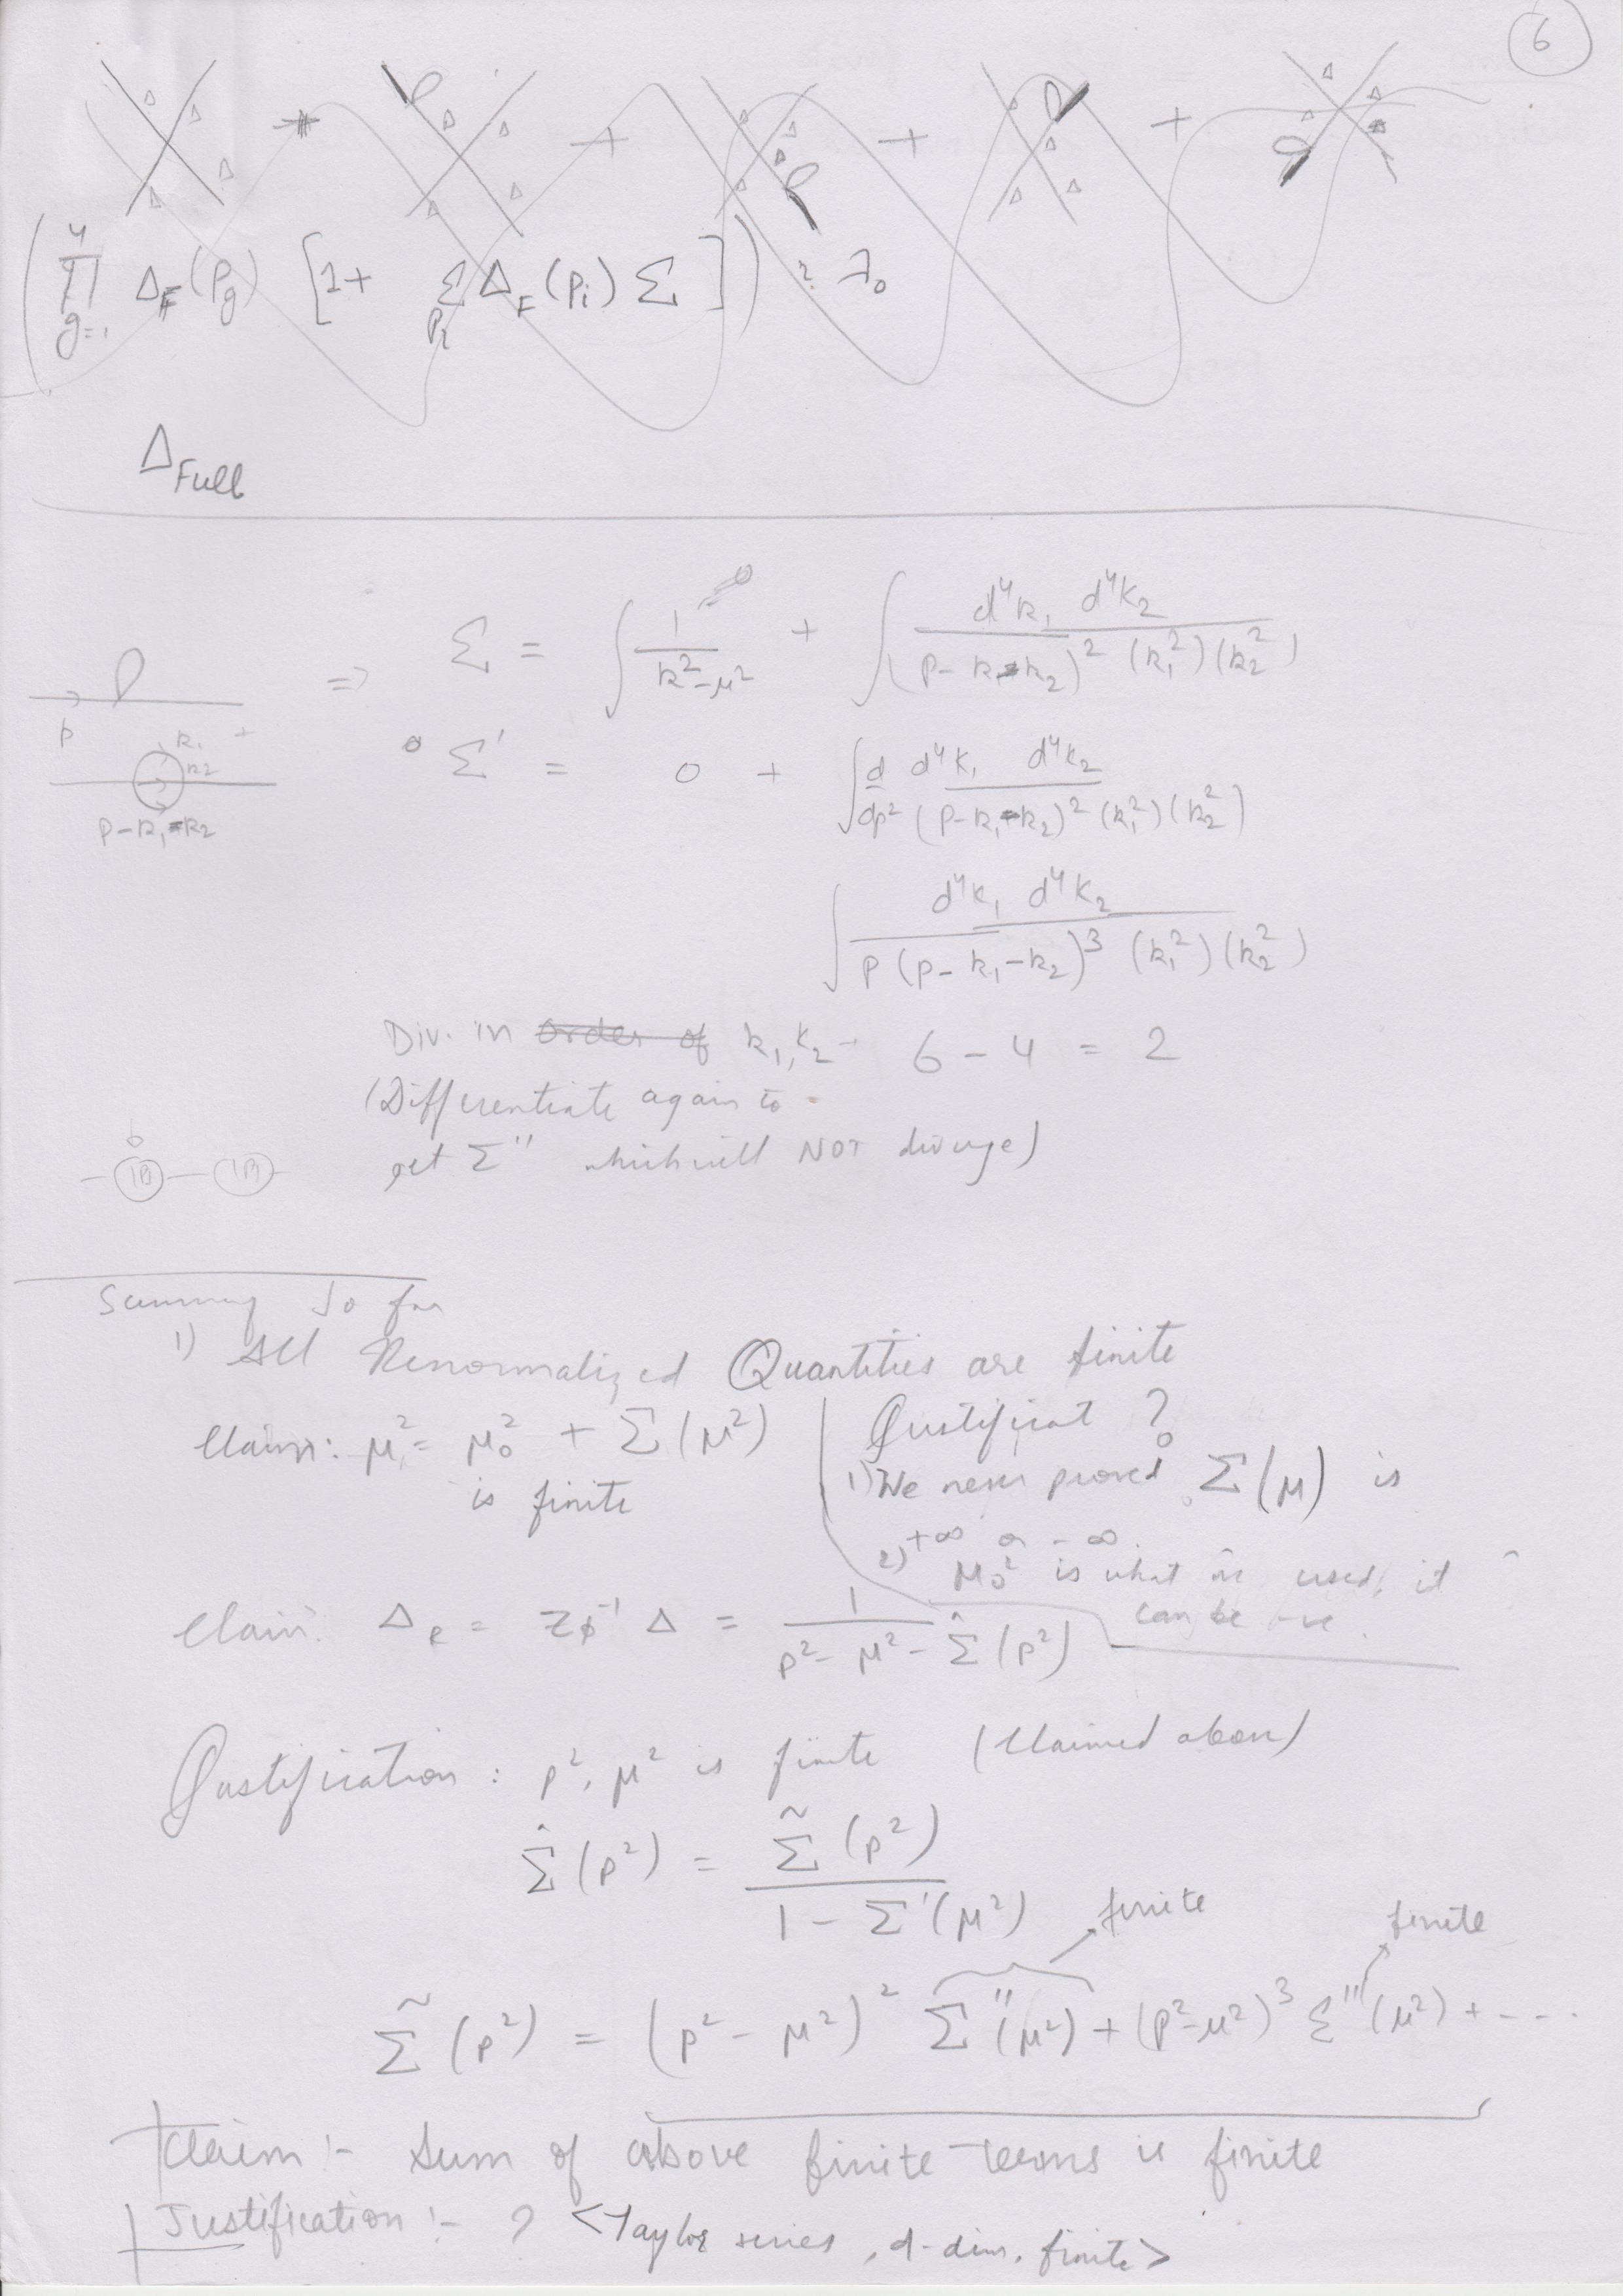 6
Δ Δ Δ Δ + Δ Δ Δ Δ + Δ Δ Δ Δ + Δ Δ Δ Δ + Δ Δ
( 4 ∏ g=1 Δ_F (P_g) [1 + Σ_{P_i} Δ_F (P_i) Σ ] ) ? λ₀
Δ_Full
p ⇒ Σ = ∫ 1/(k² - μ²) + ∫ d⁴k₁ d⁴k₂ / (p - k₁ - k₂)² (k₁²)(k₂²)
k₁ +
k₂
p - k₁ - k₂
Σ' = 0 + ∫ d/dp² d⁴k₁ d⁴k₂ / (p - k₁ - k₂)² (k₁²)(k₂²)
∫ d⁴k₁ d⁴k₂ / p (p - k₁ - k₂)³ (k₁²)(k₂²)
Div. in order of k₁, k₂ - 6 - 4 = 2
(Differentiate again to
get Σ'' which will NOT diverge)
Summary So far
1) All Renormalized Quantities are finite
Claim: μ² = μ₀² + Σ(μ²)
is finite
Justificat ?
1) We never proved Σ(μ) is
+∞ or -∞.
2) μ₀² is what is used, it
can be -ve.
Claim: Δ_R = Zφ⁻¹ Δ = 1 / (p² - μ² - Σ̂(p²))
Justification : p², μ² is finite (Claimed above)
Σ̂(p²) = Σ̃(p²) / (1 - Σ'(μ²))
finite finite
Σ̃(p²) = (p² - μ²)² Σ''(μ²) + (p² - μ²)³ Σ'''(μ²) + - - - .
Claim :- Sum of above finite terms is finite
Justification :- ? <Taylor series, d-dim. finite>